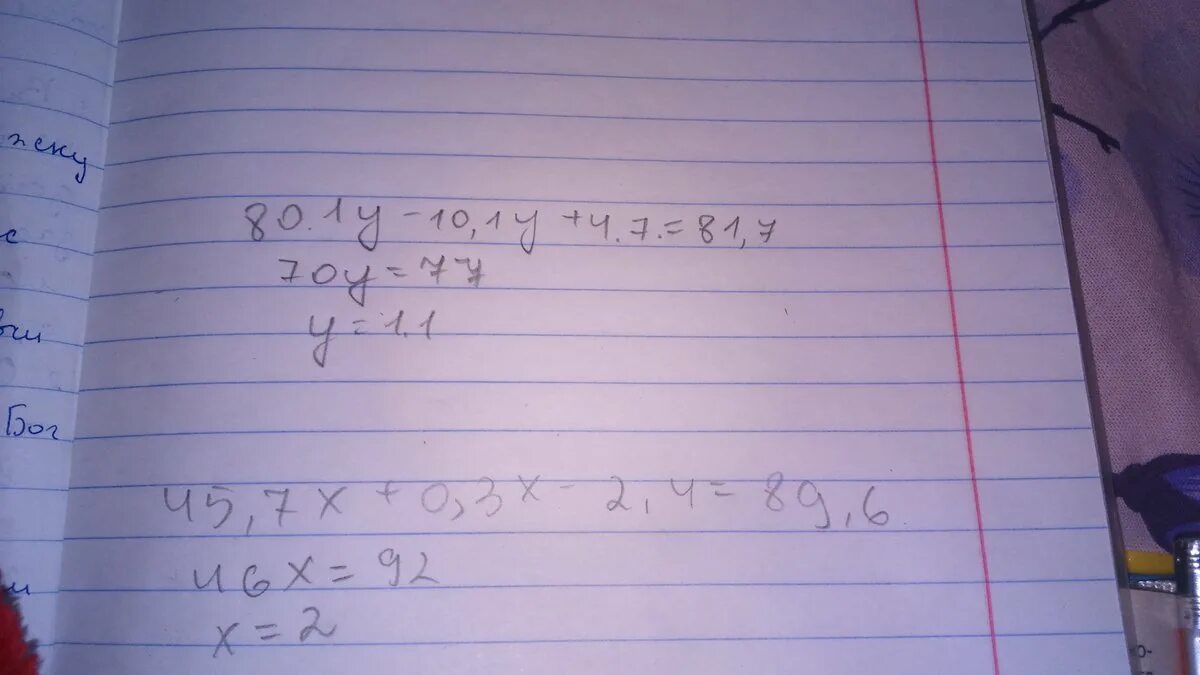 с
Бог
80.1y - 10,1y + 4.7. = 81,7
70y = 77
y = 1.1
45,7x + 0,3x - 2,4 = 89,6
46x = 92
x = 2